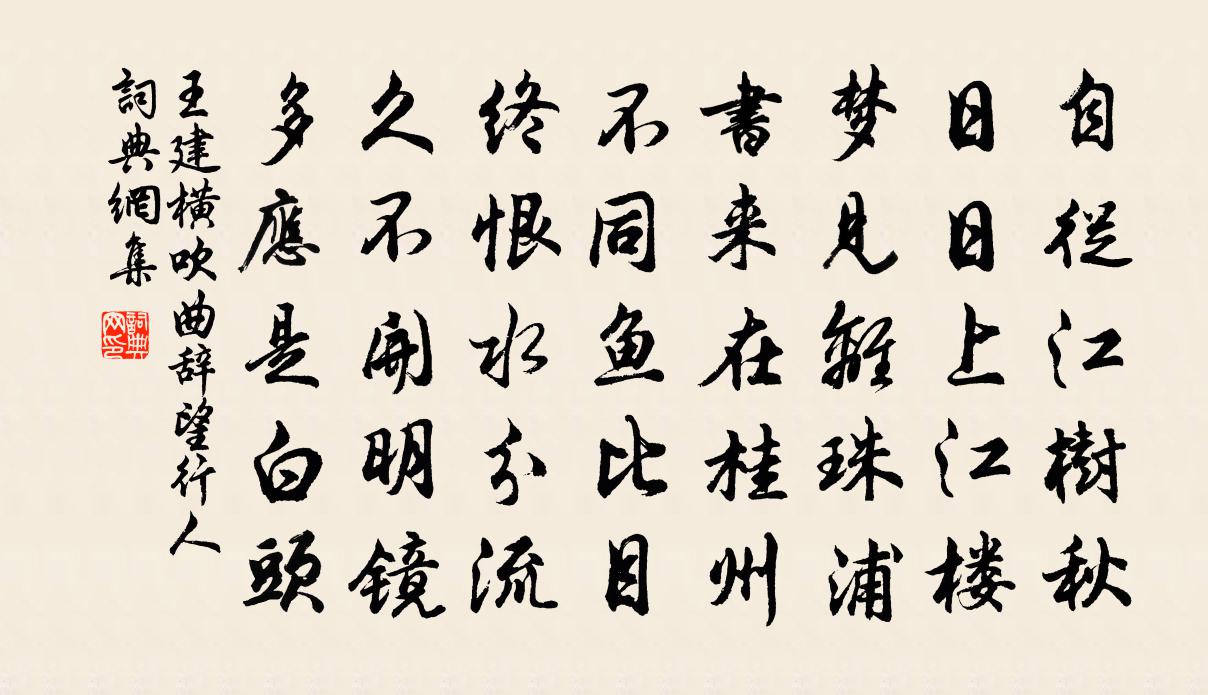 自從江樹秋
日日上江楼
梦見離珠浦
書来在桂州
不同鱼比目
终恨水分流
久不開明镜
多應是白頭
王建橫吹曲辞望行人
詞典網集
詞典网印